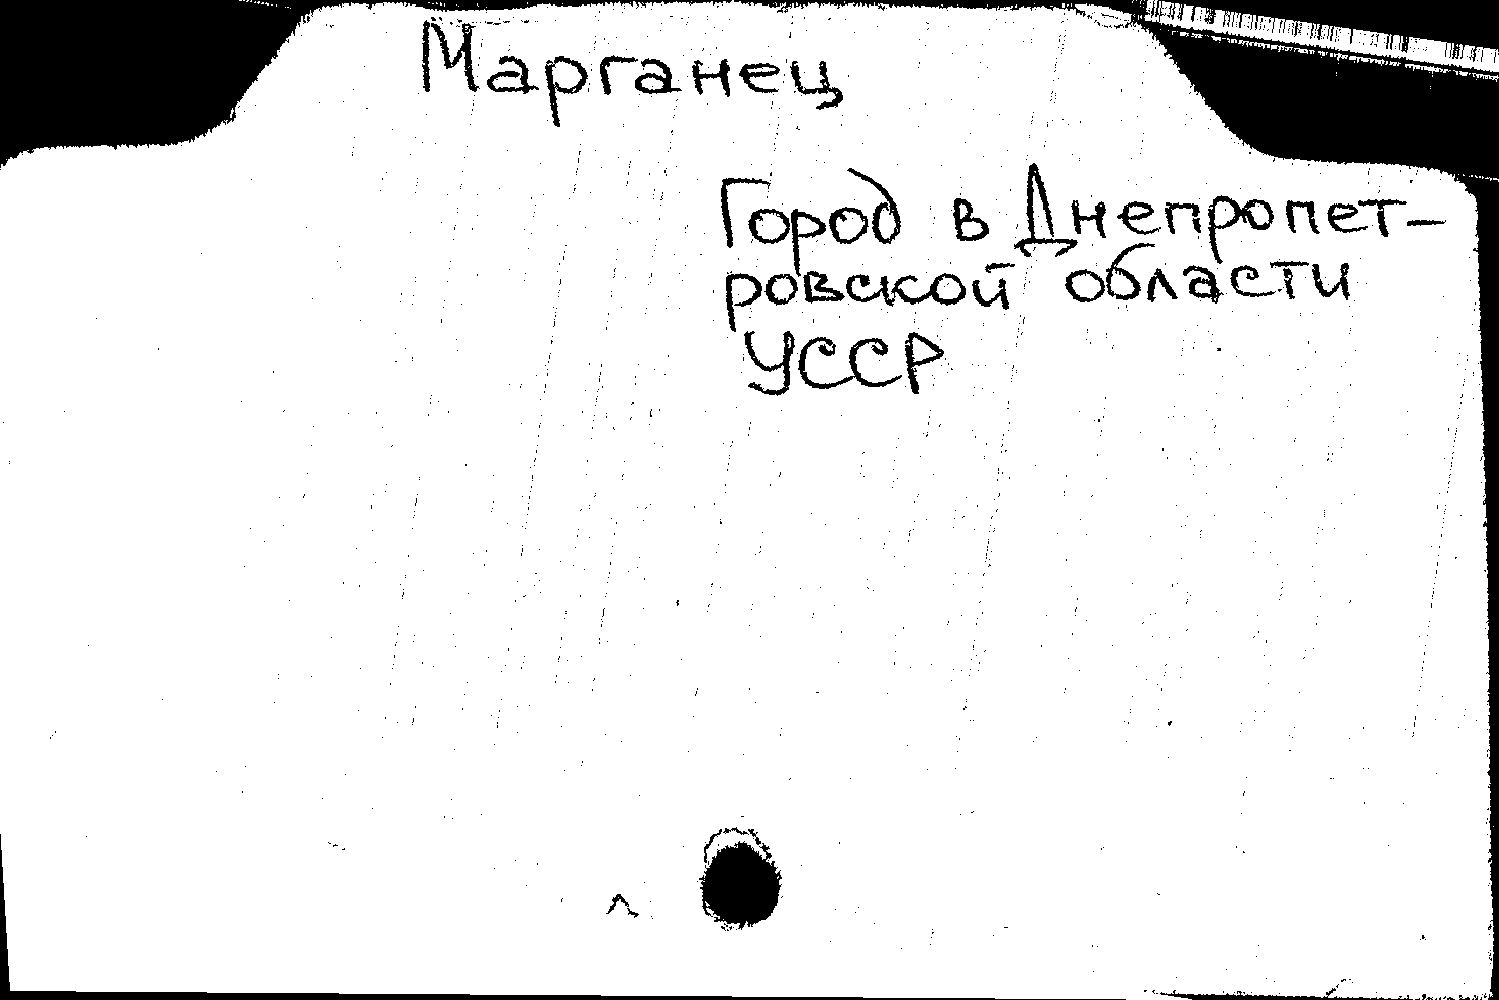 Марганец
Город в Днепропет-
ровской области
УССР